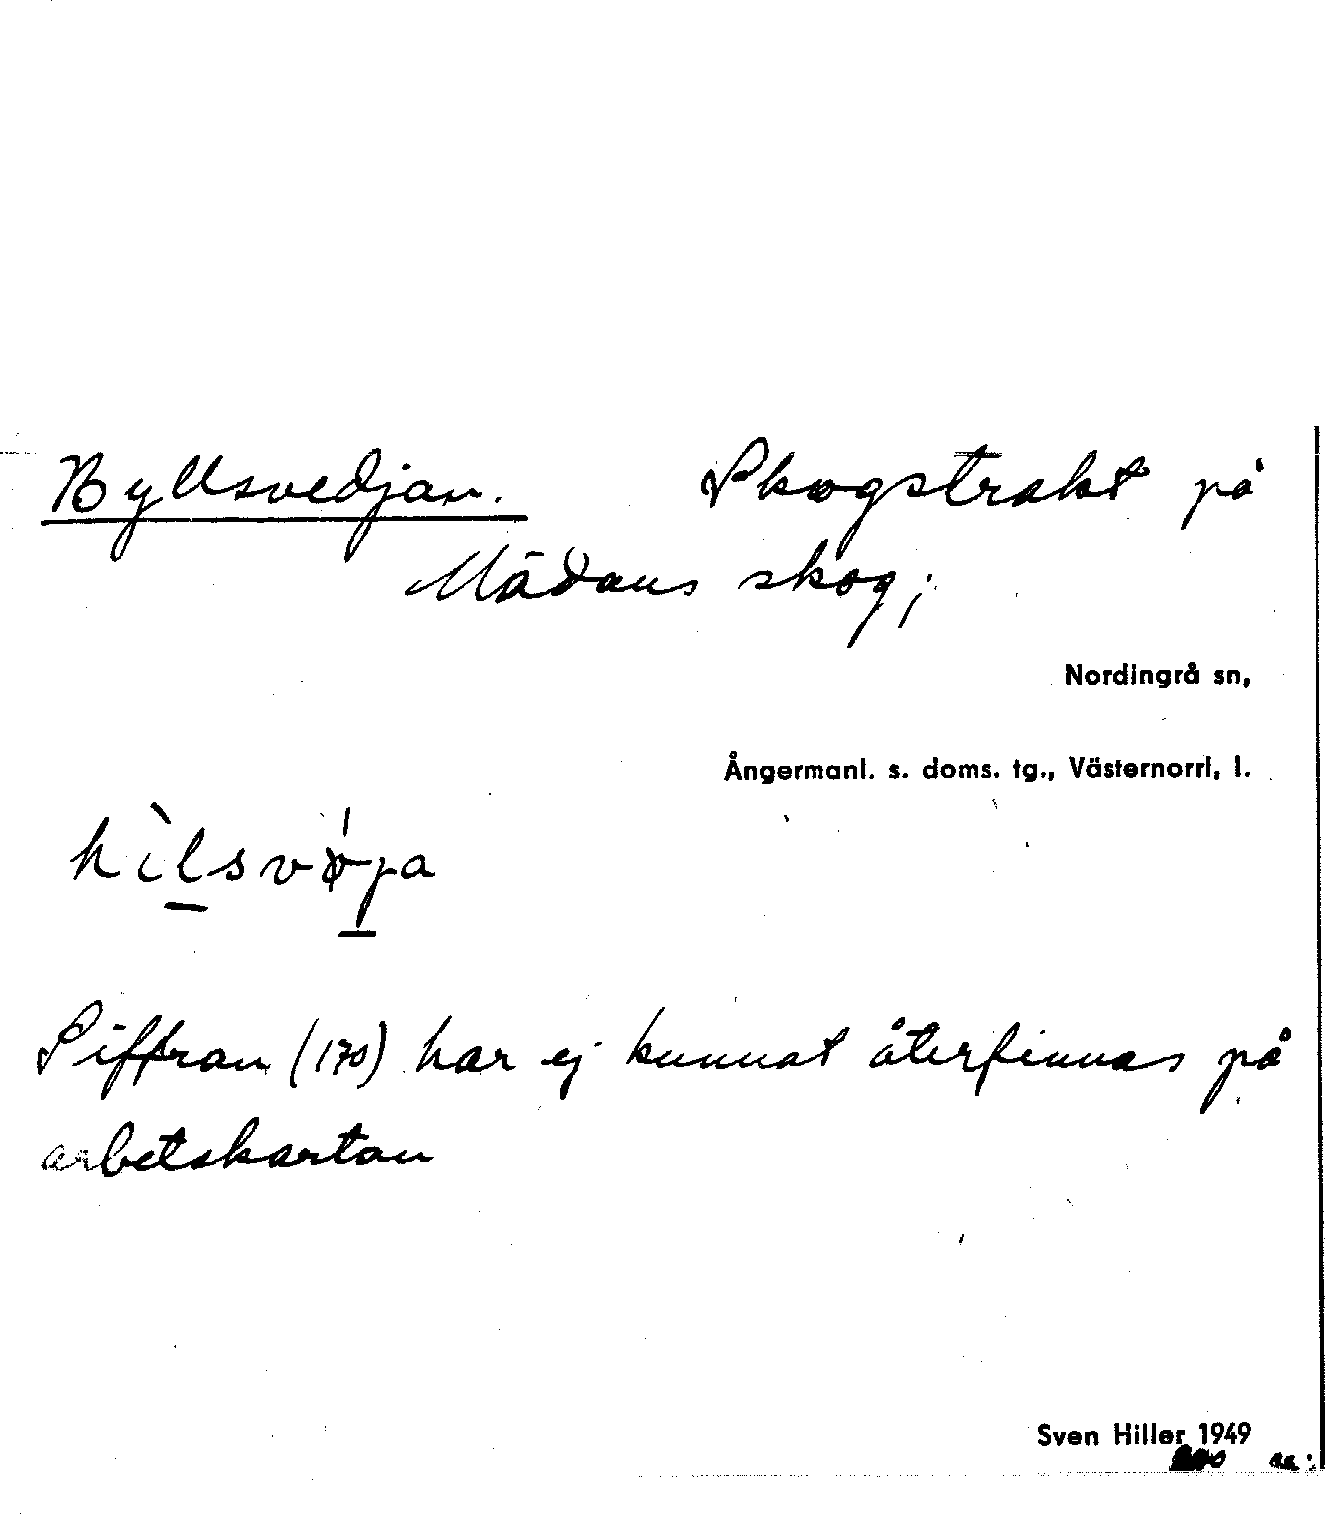 Byllsvedjan. Skogstrakt på
Mädans skog;
Nordingrå sn,
Ångermanl. s. doms. tg., Västernorrl. l.
Siffran (170) har ej kunnat återfinnas på
arbetskartan
Sven Hiller 1949